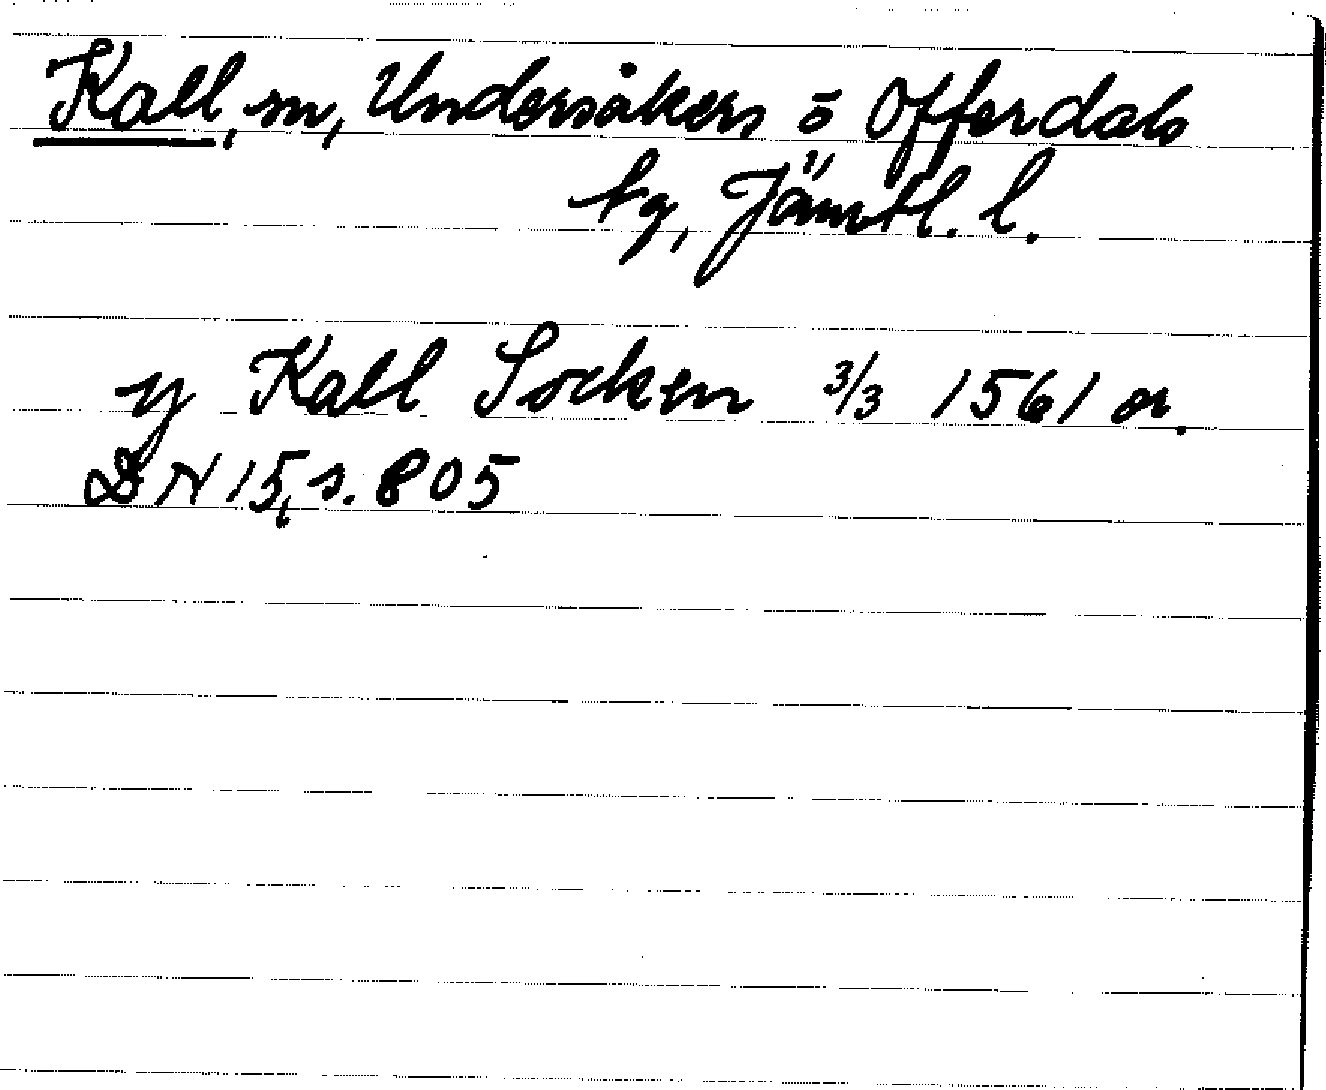 Kall, sn, Undersåkers o Offerdals
tg, Jämtl. l.
y Kall Socken 3/3 1561 or.
DN 15, s. 805